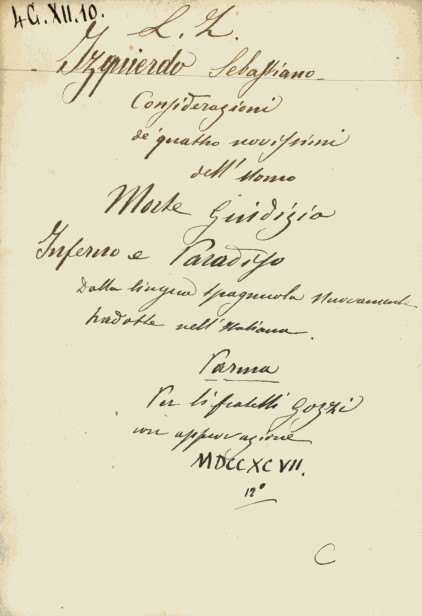 4G.XII.10.
L. L.
Izquierdo Sebastiano
Considerazioni
de' quattro novissimi
dell' Uomo
Morte Giudizio
Inferno e Paradiso
Dalla lingua spagnuola nuovament
tradotte nell'Italiana.
Parma
Per li fratelli Gozzi
con approvazione
MDCCXCVII.
12°
C